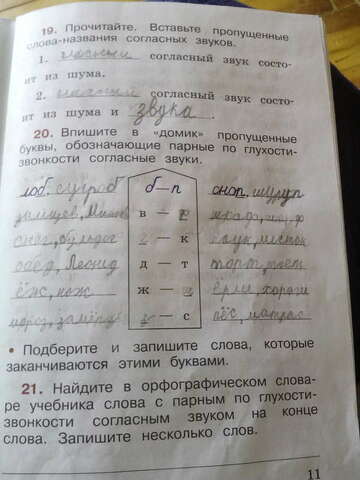 19. Прочитайте. Вставьте пропущенные
слова-названия согласных звуков.
1. согласный звук состо-
ит из шума.
2. согласный звук состо-
ит из шума и звука.
20. Впишите в „домик” пропущенные
буквы, обозначающие парные по глухости-
звонкости согласные звуки.
лоб. сугроб б—п сноп. шуруп
в —
снег, бульдог — к паук,
обед, Леонид д — т
ёж, нож ж —
мороз, — с пёс, матрас
• Подберите и запишите слова, которые
заканчиваются этими буквами.
21. Найдите в орфографическом слова-
ре учебника слова с парным по глухости-
звонкости согласным звуком на конце
слова. Запишите несколько слов.
11